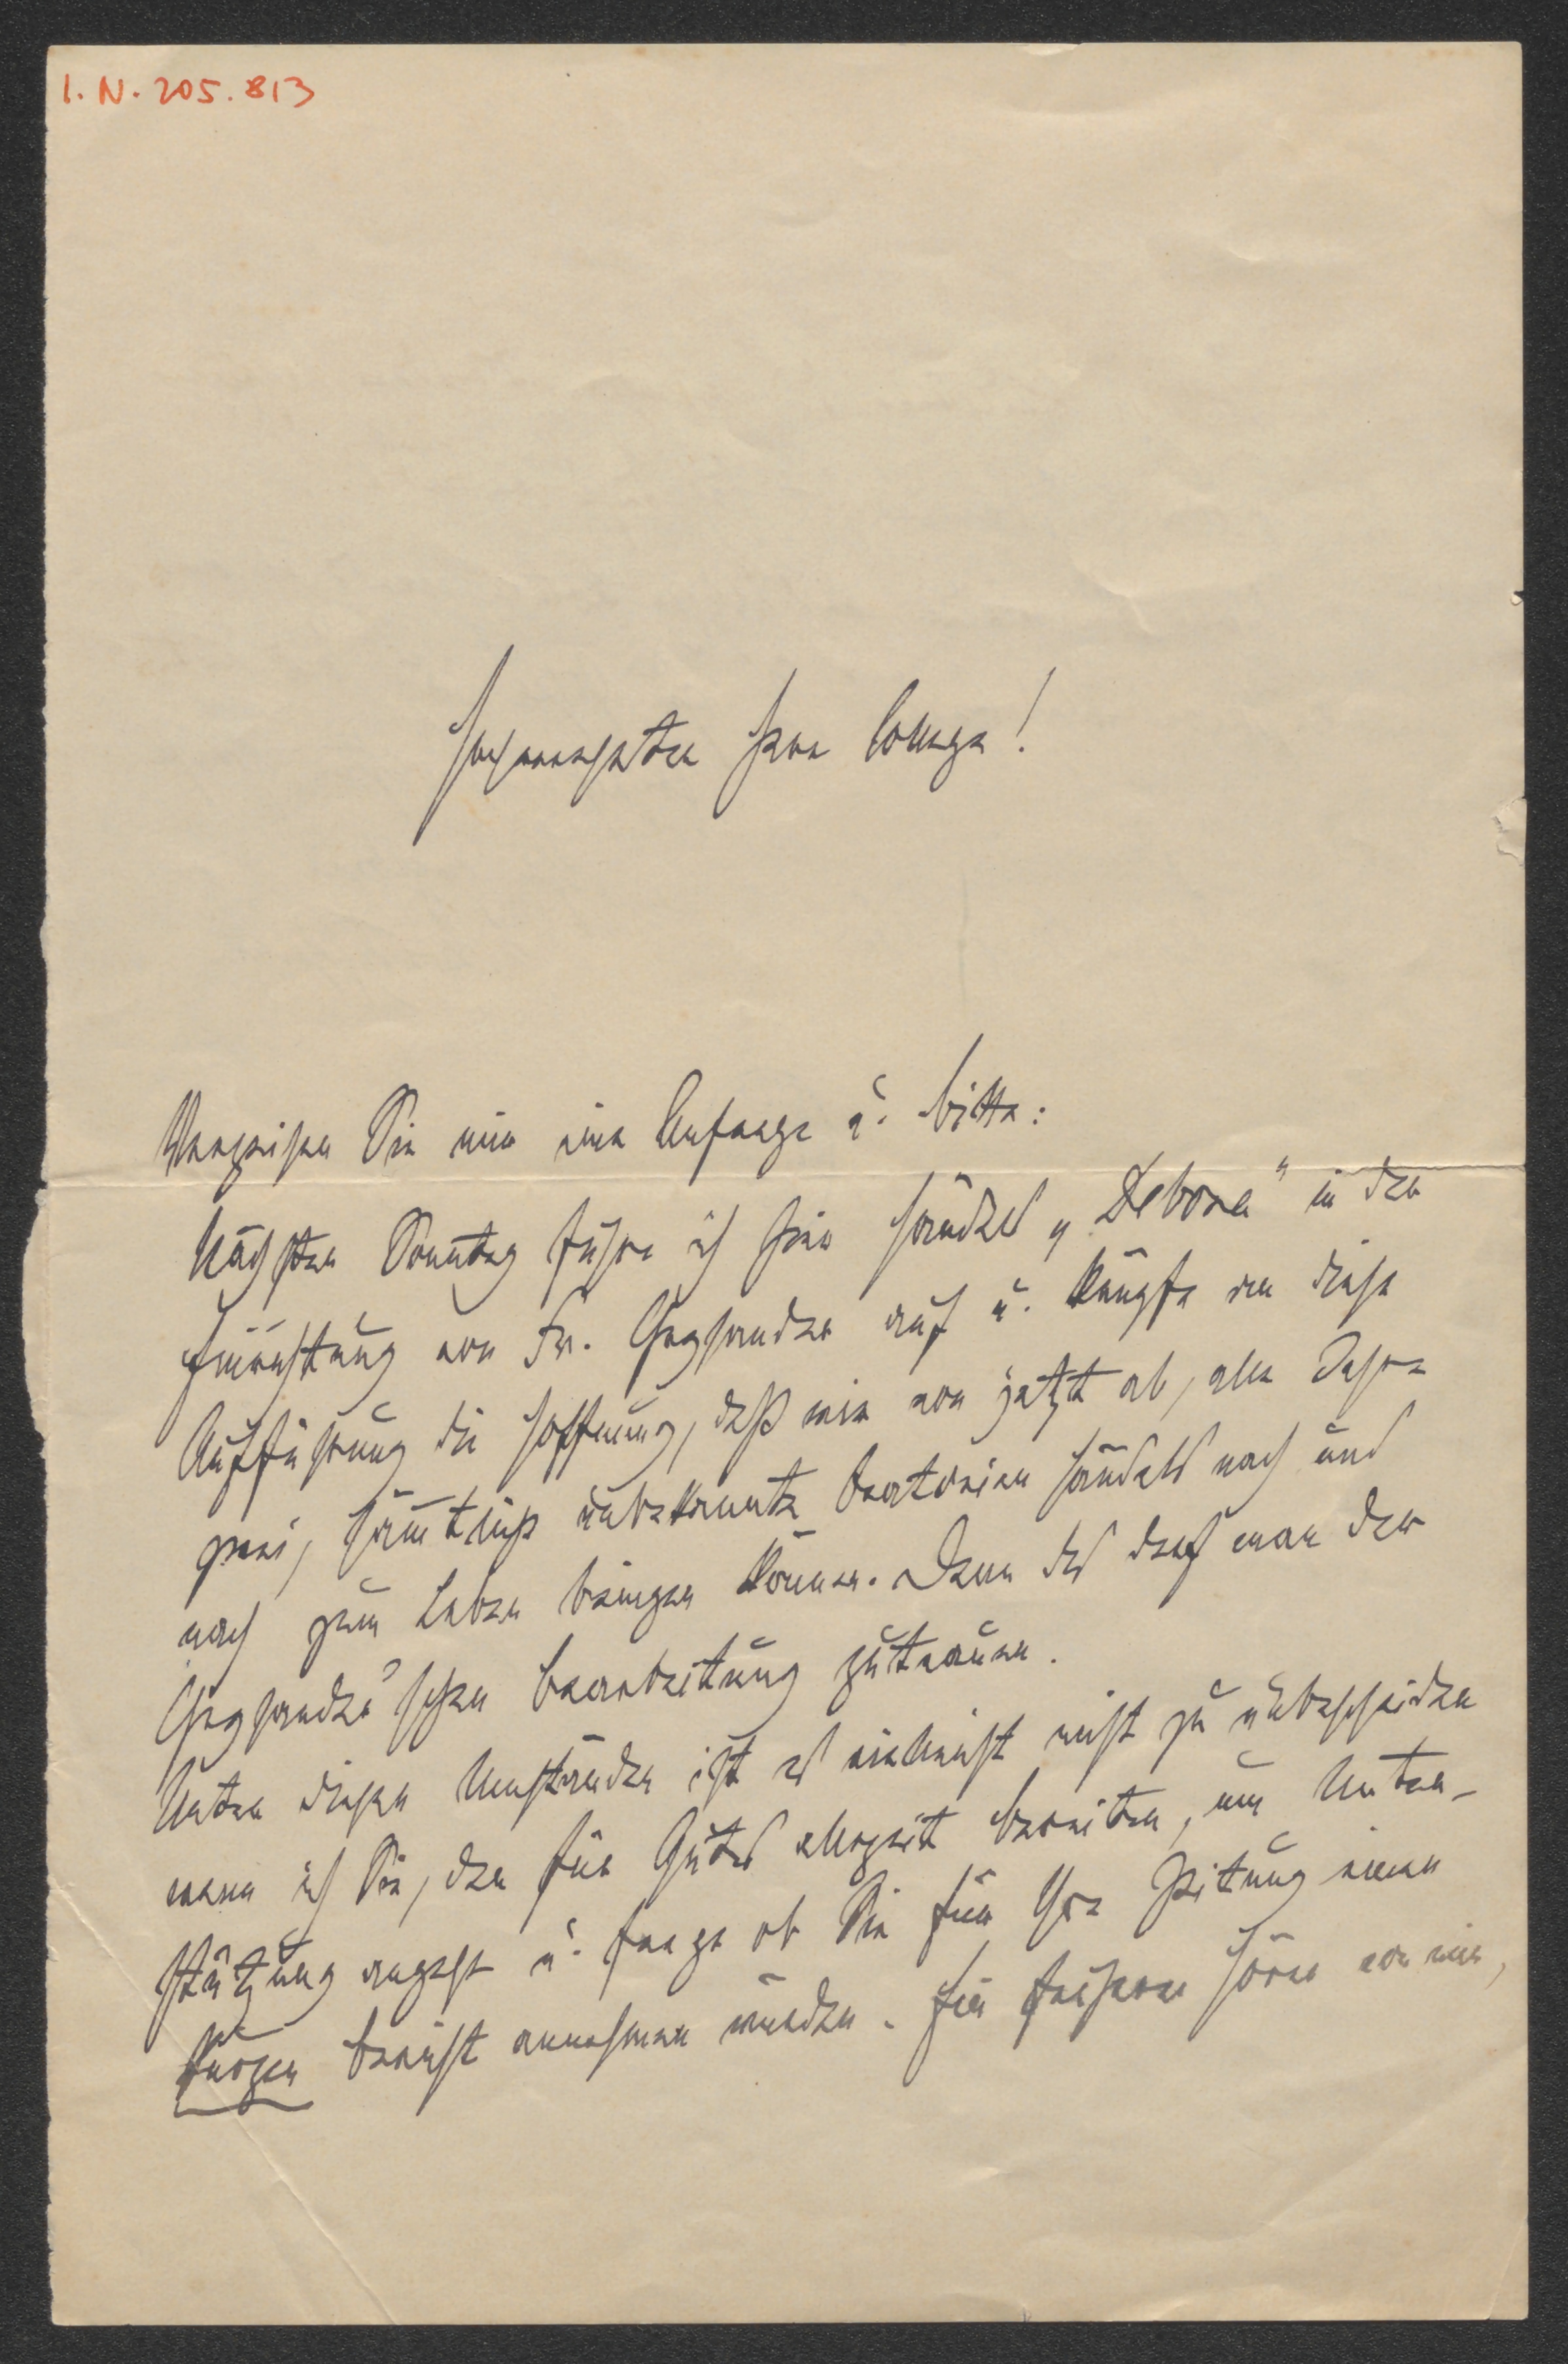 I. N. 205.813
Hochverehrter Herr College!
Verzeihen Sie mir eine Anfrage u. Bitte:
Nächsten Sonntag führe ich hier Händels „Debora" in der
Einrichtung von Fr. Chrysander auf u. knüpfe an diese
Aufführung die Hoffnung, daß wir von jetzt ab, alle Jahre
zwei, sämtliche unbekannte Oratorien Händels nach und
nach zum Leben bringen können. Denn das darf man der
Chrysander'schen Bearbeitung zutrauen.
Unter diesen Umständen ist es vielleicht nicht zu unbescheiden
wenn ich Sie, den für Gutes allezeit bereiten, um Unter-
stützung angehe u. frage ob Sie für Ihre Zeitung einen
kurzen Bericht annehmen würden. Hier